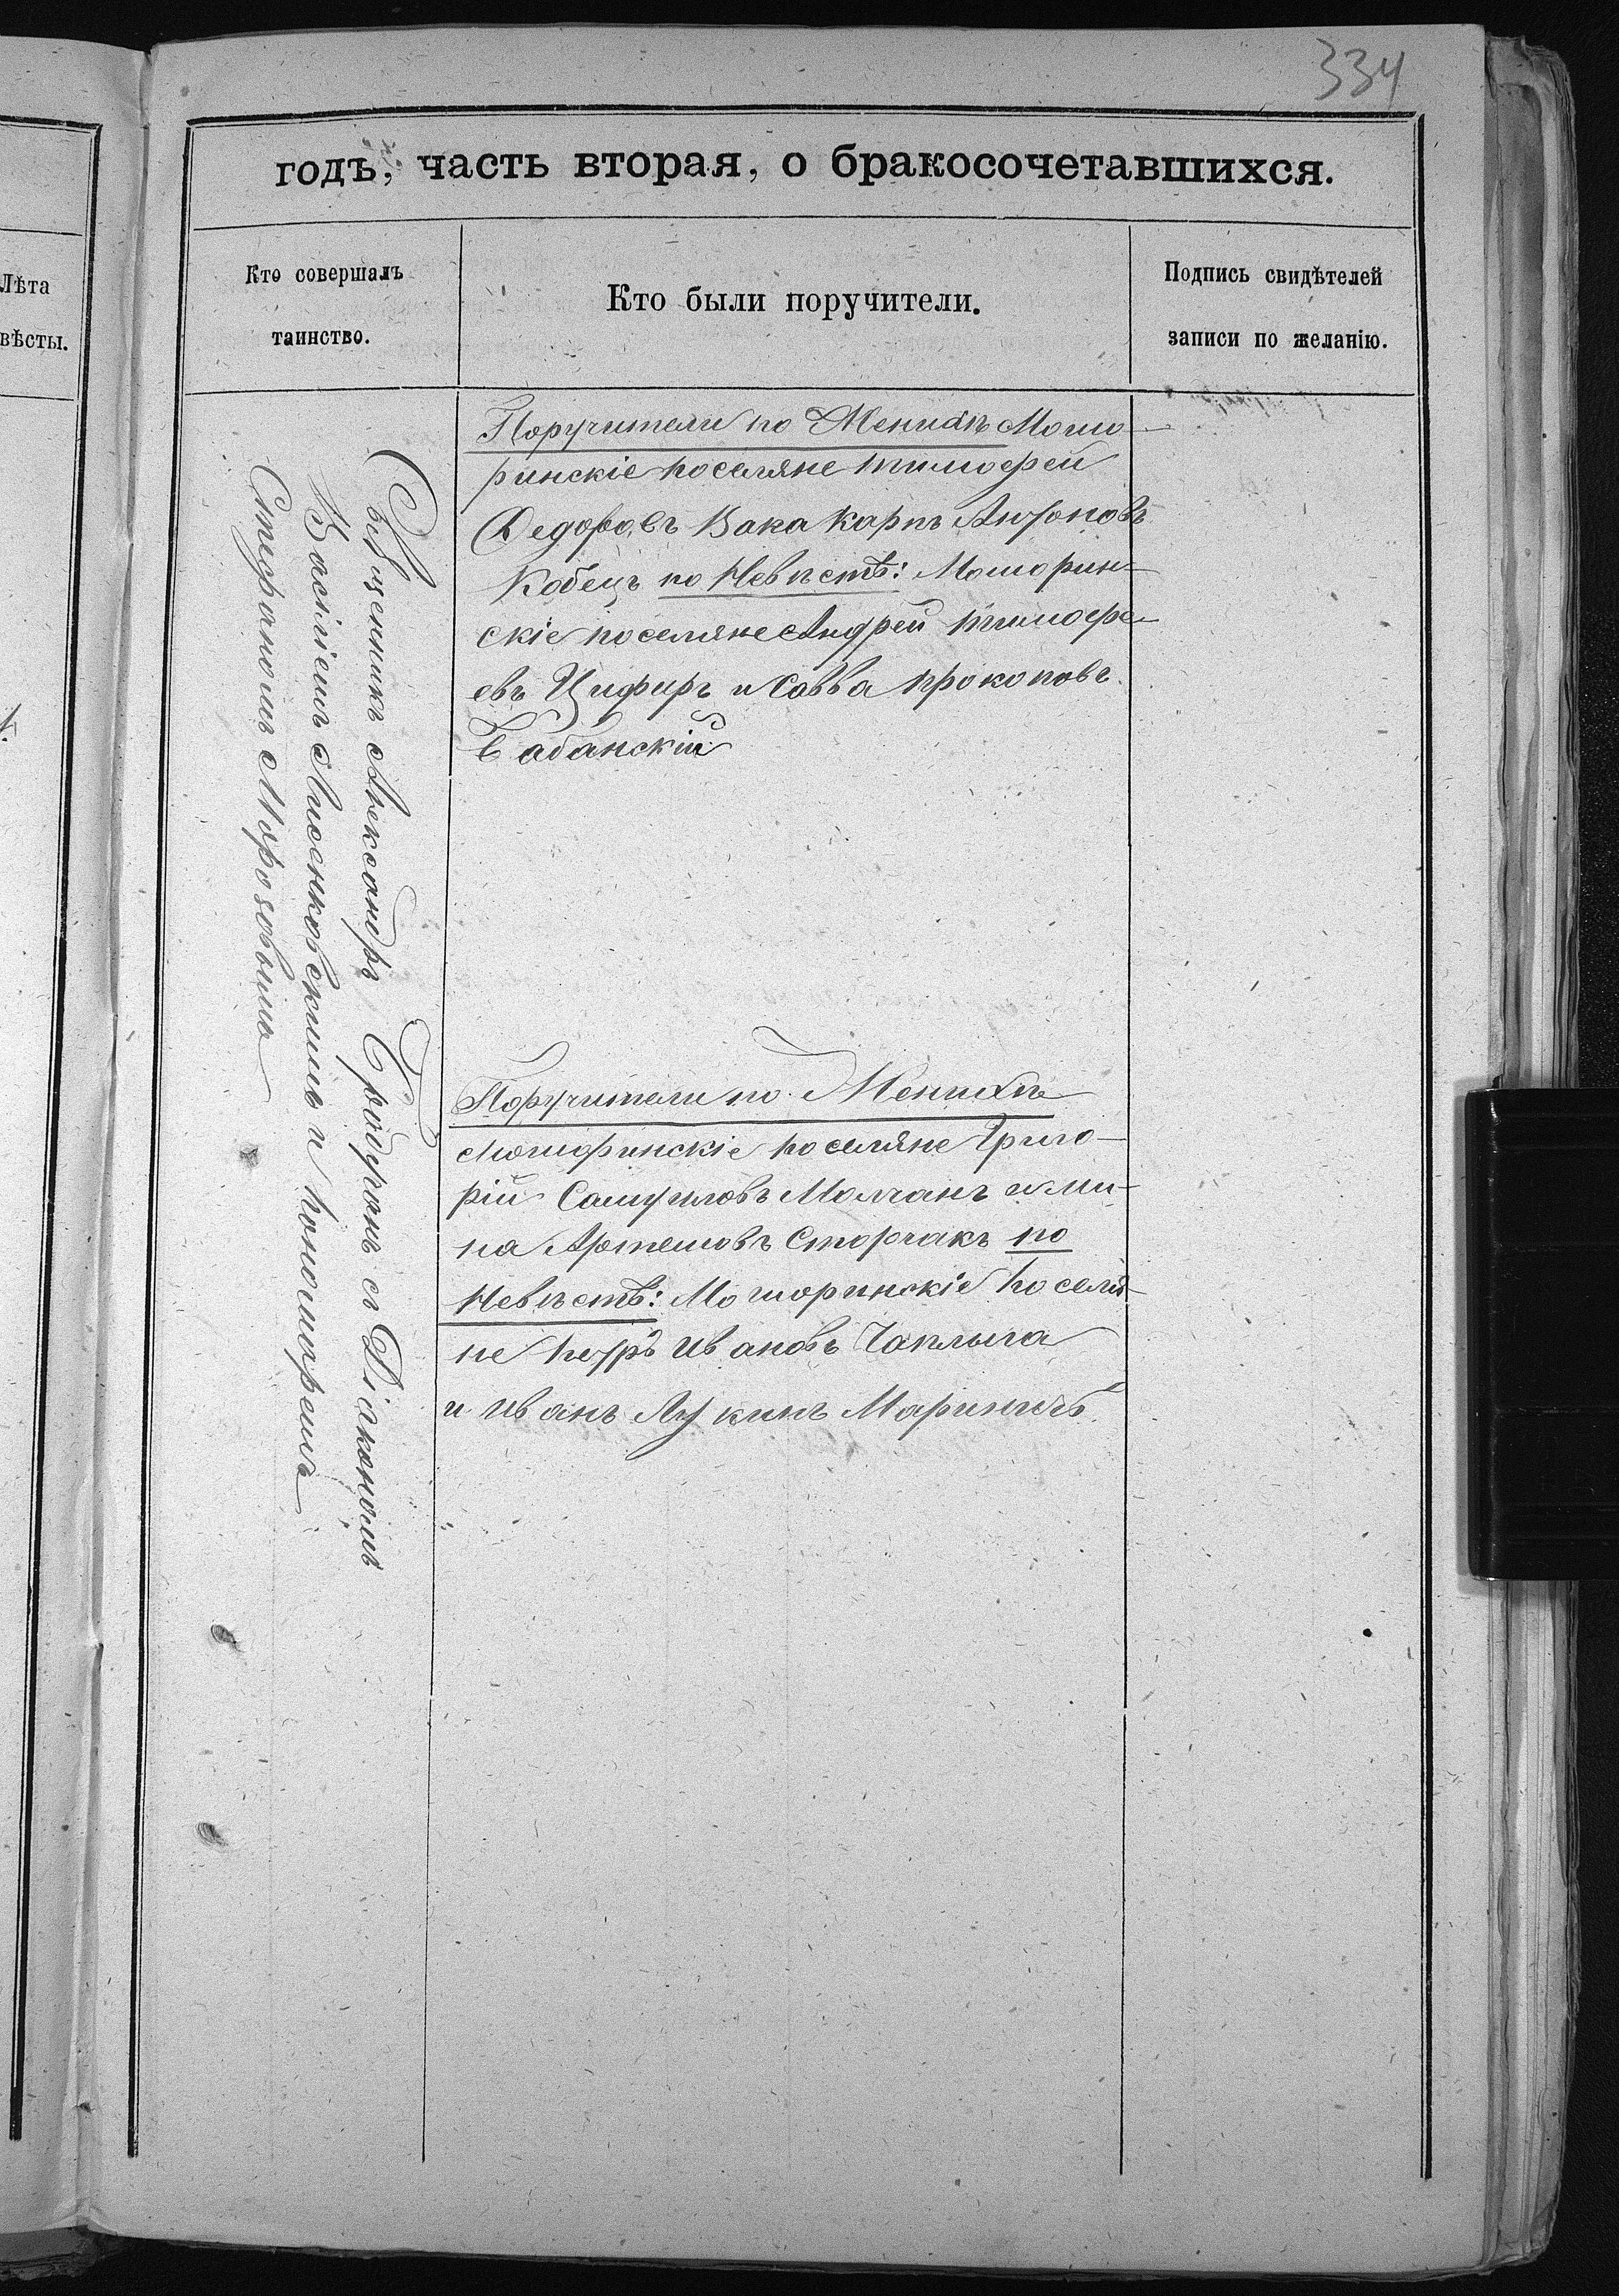 334
годъ, часть вторая, о бракосочетавшихся.
Лѣта
вѣсты.
Кто совершалъ
таинство.
Кто были поручители.
Подпись свидѣтелей
записи по желанію.
Священникъ Александръ с Діакономъ
Василіемъ Лисенковскимъ и пономаремъ
Стефаномъ Морозовимъ
Поручители по Женихѣ Мошо-
ринскіе поселяне Тимофей
Федоровъ Вака Карпъ Антоновъ
Кобецъ по Невѣстѣ: Мошорин-
скіе поселяне Андрей Тимофе-
евъ Цифиръ и Савва Прокоповъ
Бабанскій
Поручители по Женихѣ
Мошоринскіе поселяне Григо-
рій Самуиловъ Молчанъ и Ми-
на Артемовъ Сторчакъ по
Невѣстѣ: Мошоринскіе поселя-
не Петръ Ивановъ Чаплыга
и Иванъ Лукинъ